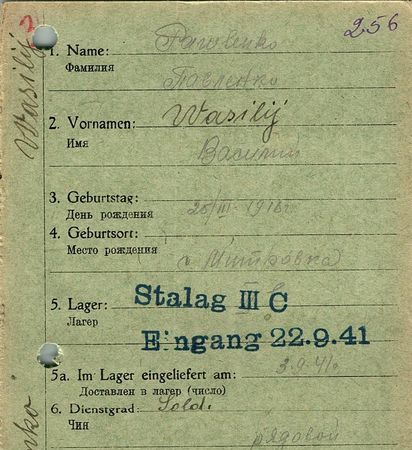 256
1. Name: Pawlenko
Фамилия Павленко
2. Vornamen: Wasilij
Имя Василий
3. Geburtstag:
День рождения 25/III-1918г.
4. Geburtsort:
Место рождения
5. Lager: Stalag III C
Лагер
Eingang 22.9.41
5a. Im Lager eingeliefert am:
Доставлен в лагер (число) 3.9.41.
6. Dienstgrad: Sold.
Чин рядовой
Wasilij